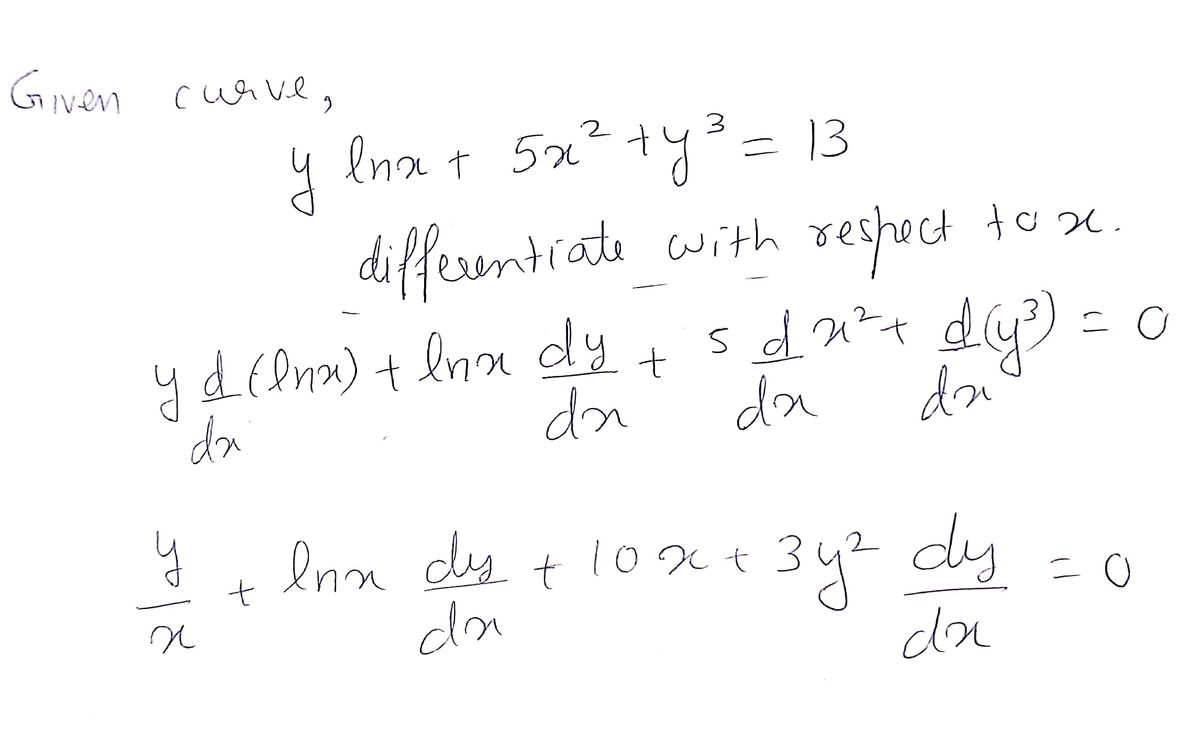 Given curve,
y lnx + 5x² + y³ = 13
differentiate with respect to x.
y d/dx (lnx) + lnx dy/dx + 5 d/dx x² + d(y³)/dx = 0
y/x + lnx dy/dx + 10x + 3y² dy/dx = 0